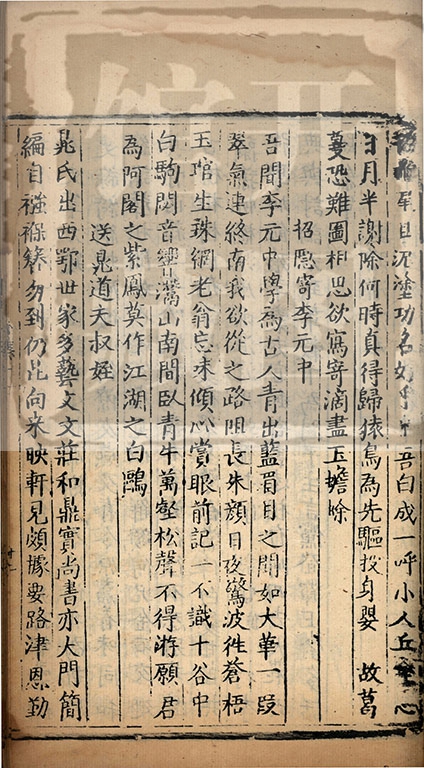 尾且泥塗功名如 吾白成一呼小人丘 心
日月半謝除何時真得歸猿鳥為先驅投身嬰 故葛
蔓恐難圖相思欲寫寄滴盡玉蟾蜍
招隱寄李元中
吾聞李元中學為古人青出藍眉目之間如太華一段
翠氣連終南我欲從之路阻長朱顏日夜驚波往蒼梧
玉琯生珠網老翁忘味傾心賞眼前記一不識十谷中
白駒閟音響灊山南間臥青牛萬壑松聲不得游願君
為阿閣之紫鳳莫作江湖之白鷗
送晁道夫叔姪
晁氏出西鄂世家多藝文文莊和鼎實尚書亦大門簡
編自襁褓簪笏到仍昆向來映軒見頗據要路津恩勤